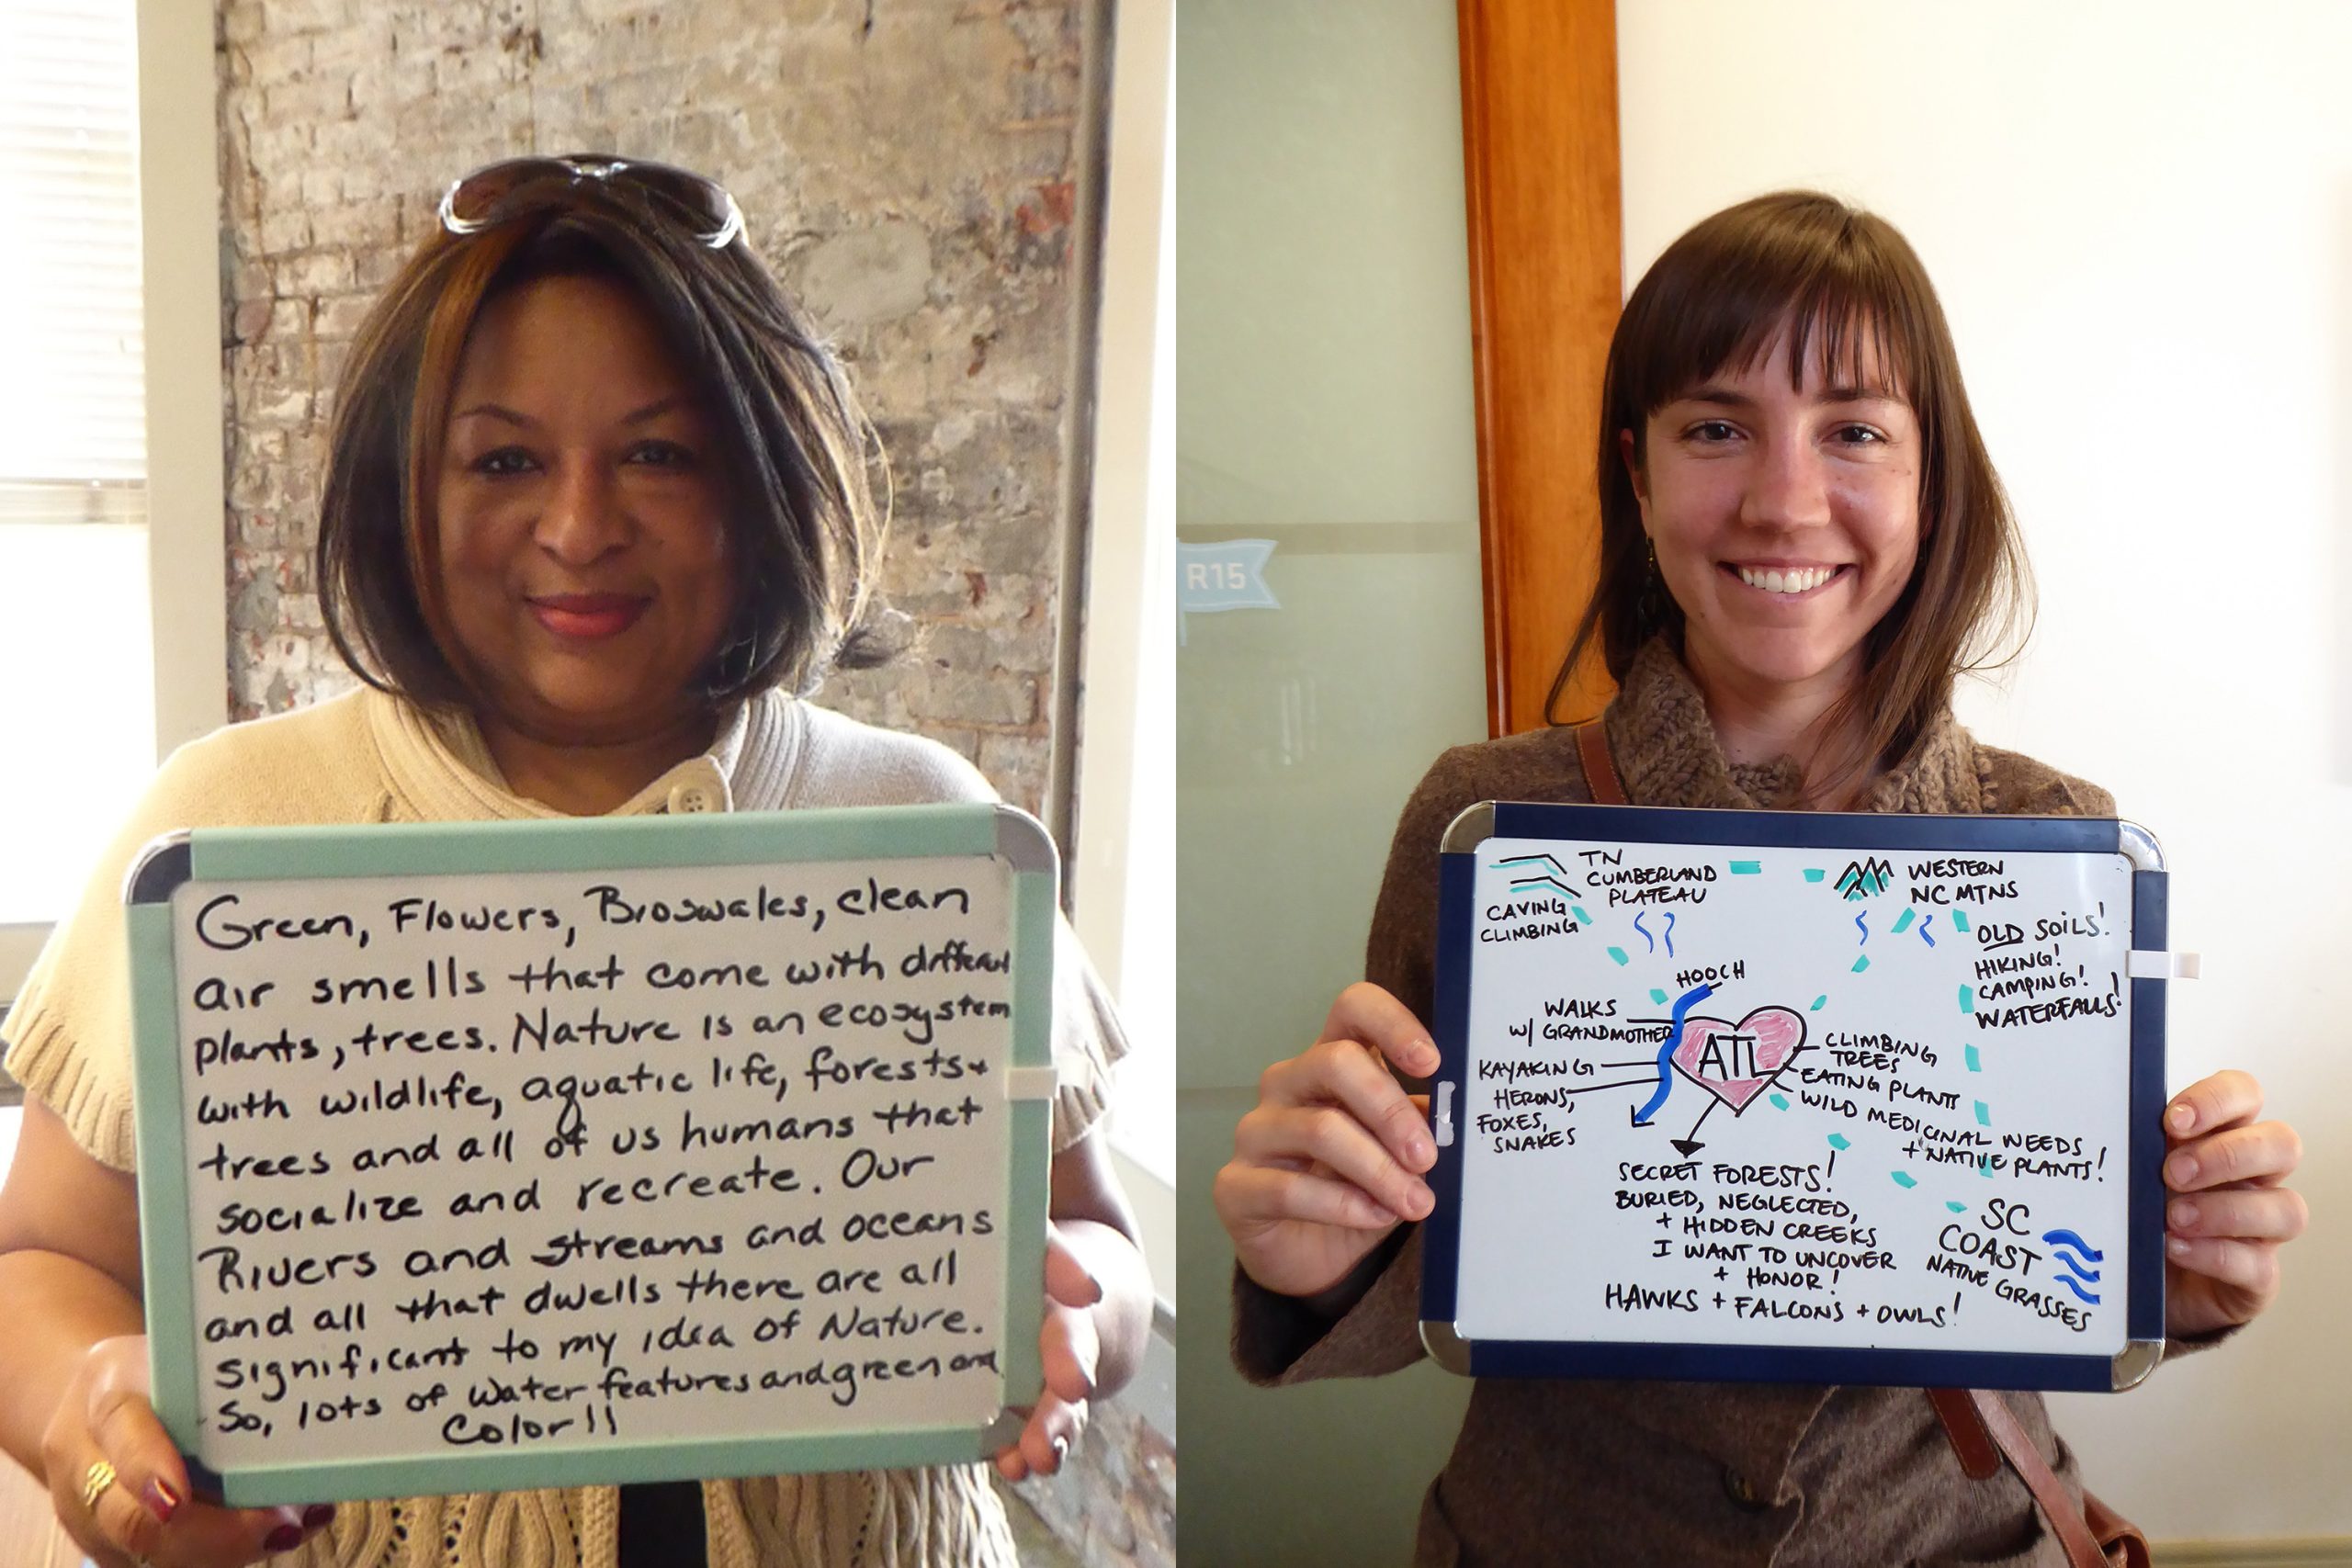 Green, Flowers, Bioswales, clean
air smells that come with different
plants, trees. Nature is an ecosystem
with wildlife, aquatic life, forests +
trees and all of us humans that
socialize and recreate. Our
Rivers and streams and oceans
and all that dwells there are all
significant to my idea of Nature.
So, lots of water features and green and
Color!!
R15
TN
CUMBERLAND
PLATEAU
CAVING
CLIMBING
WESTERN
NC MTNS
OLD SOILS!
HIKING!
CAMPING!
WATERFALLS!
HOOCH
WALKS
W/ GRANDMOTHER
KAYAKING
HERONS,
FOXES,
SNAKES
ATL
CLIMBING
TREES
EATING PLANTS
WILD MEDICINAL WEEDS
+ NATIVE PLANTS!
SECRET FORESTS!
BURIED, NEGLECTED,
+ HIDDEN CREEKS
I WANT TO UNCOVER
+ HONOR!
HAWKS + FALCONS + OWLS!
SC
COAST
NATIVE GRASSES